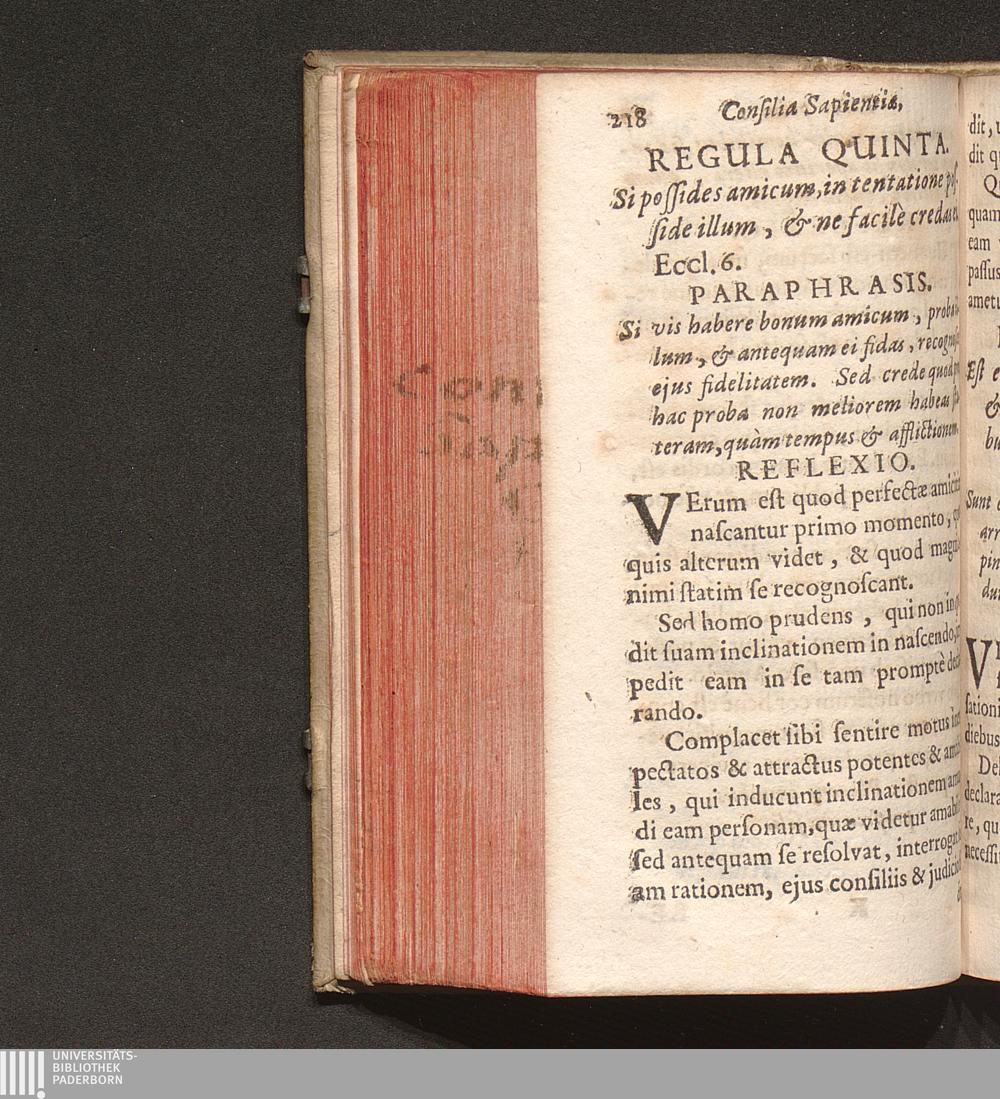 218 Conſilia Sapientiæ,
REGULA QUINTA.
Si poſſides amicum, in tentatione poſ-
ſide illum, & ne facilè credas ei.
Eccl. 6.
PARAPHRASIS.
Si vis habere bonum amicum, proba il-
lum, & antequam ei fidas, recognoſce
ejus fidelitatem. Sed crede quod pro
hac proba non meliorem habeas ſta-
teram, quàm tempus & afflictionem.
REFLEXIO.
VErum eſt quod perfectæ amicitiæ
naſcantur primo momento,
quis alterum videt, & quod magna-
nimi ſtatim ſe recognoſcant.
Sed homo prudens, qui non
dit ſuam inclinationem in naſcendo,
pedit eam in ſe tam promptè decla-
rando.
Complacet ſibi ſentire motus
pectatos & attractus potentes &
les, qui inducunt inclinationem
di eam perſonam, quæ videtur amabilis
ſed antequam ſe reſolvat, interrogat
am rationem, ejus conſiliis & judicio
dit,
dit
quam
eam
paſſus
Eſt
&
Sunt
diebus
declara
re,
UNIVERSITÄTS-
BIBLIOTHEK
PADERBORN